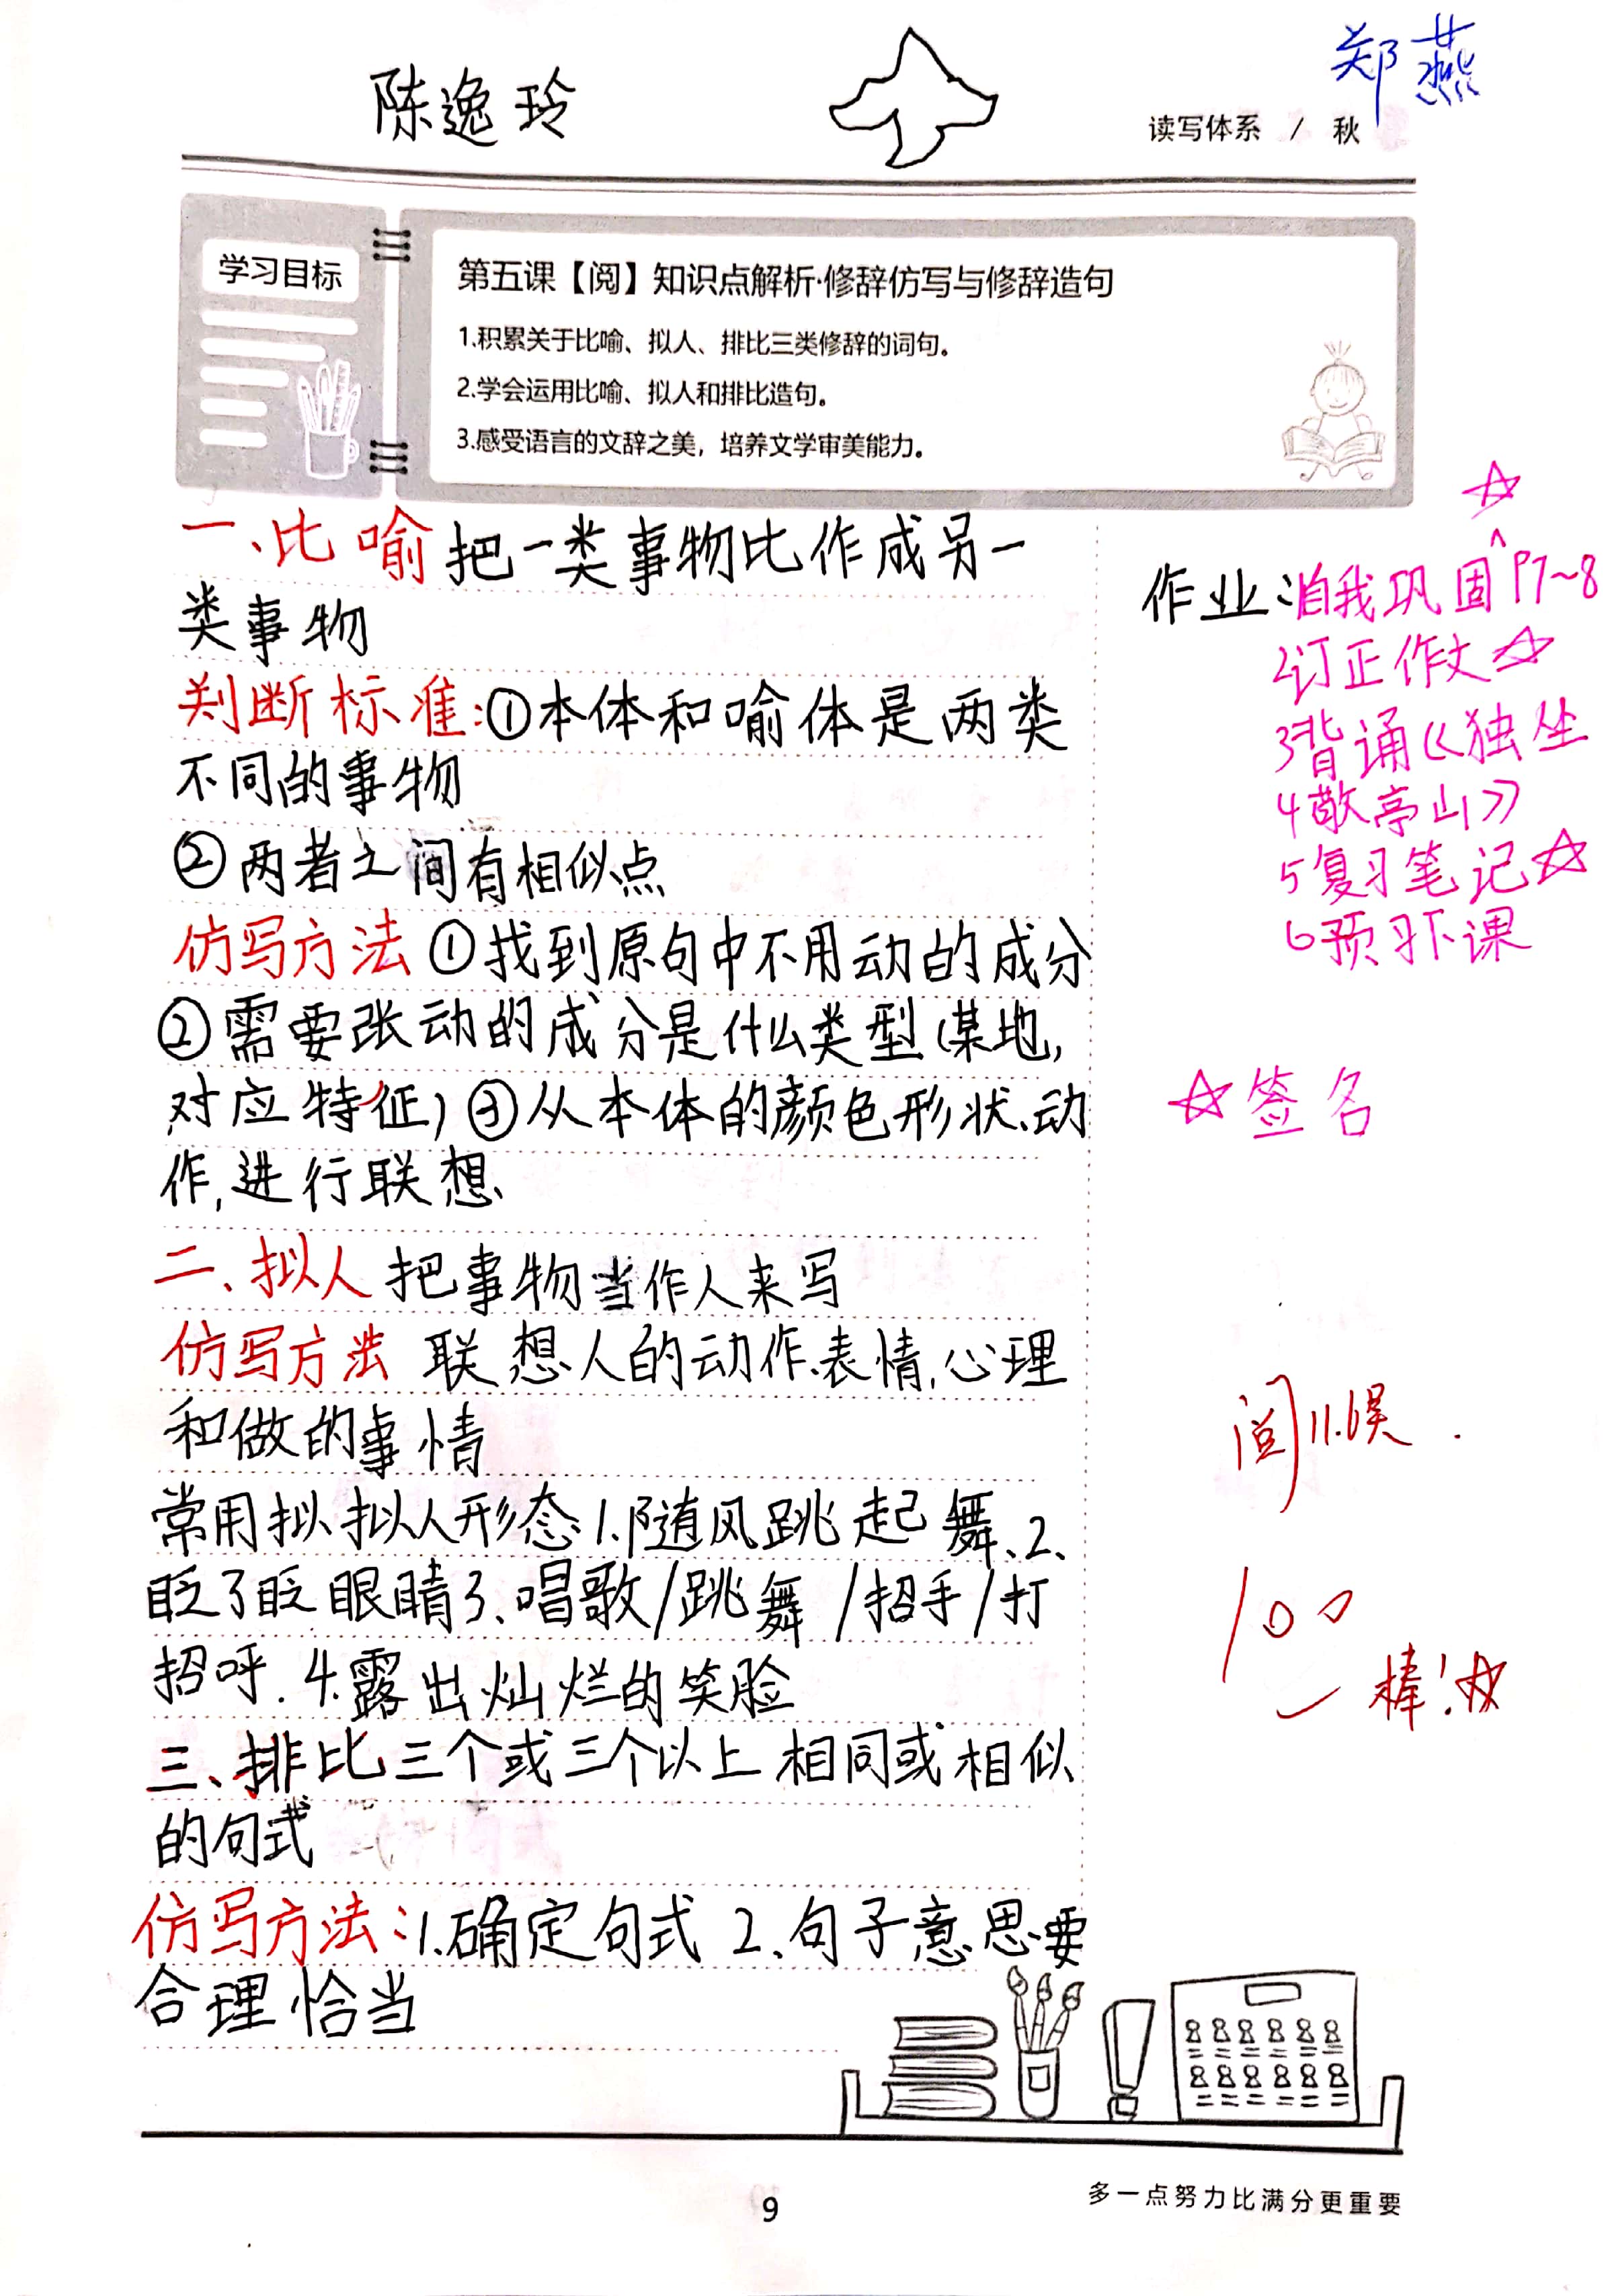 陈逸玲
郑燕
读写体系 / 秋
学习目标
第五课【阅】知识点解析·修辞仿写与修辞造句
1.积累关于比喻、拟人、排比三类修辞的词句。
2.学会运用比喻、拟人和排比造句。
3.感受语言的文辞之美，培养文学审美能力。
一、比喻 把一类事物比作成另一
类事物
判断标准：①本体和喻体是两类
不同的事物
②两者之间有相似点
仿写方法 ①找到原句中不用动的成分
②需要改动的成分是什么类型（某地，
对应特征）③从本体的颜色形状、动
作，进行联想
二、拟人 把事物当作人来写
仿写方法 联想人的动作、表情，心理
和做的事情
常用拟拟人形态 1.随风跳起舞、2、
眨了眨眼睛 3、唱歌/跳舞/招手/打
招呼. 4.露出灿烂的笑脸
三、排比 三个或三个以上相同或相似
的句式
仿写方法：1.确定句式 2、句子意思要
合理恰当
作业：1自我巩固P7~8
2订正作文☆
3背诵《独坐
4敬亭山》
5复习笔记☆
6预习下课
☆签名
阅 11.6
100
棒！☆
9
多一点努力比满分更重要